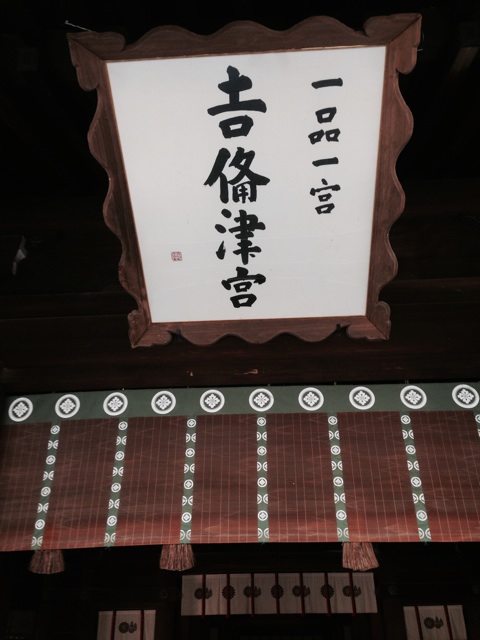 一品一宮
吉備津宮